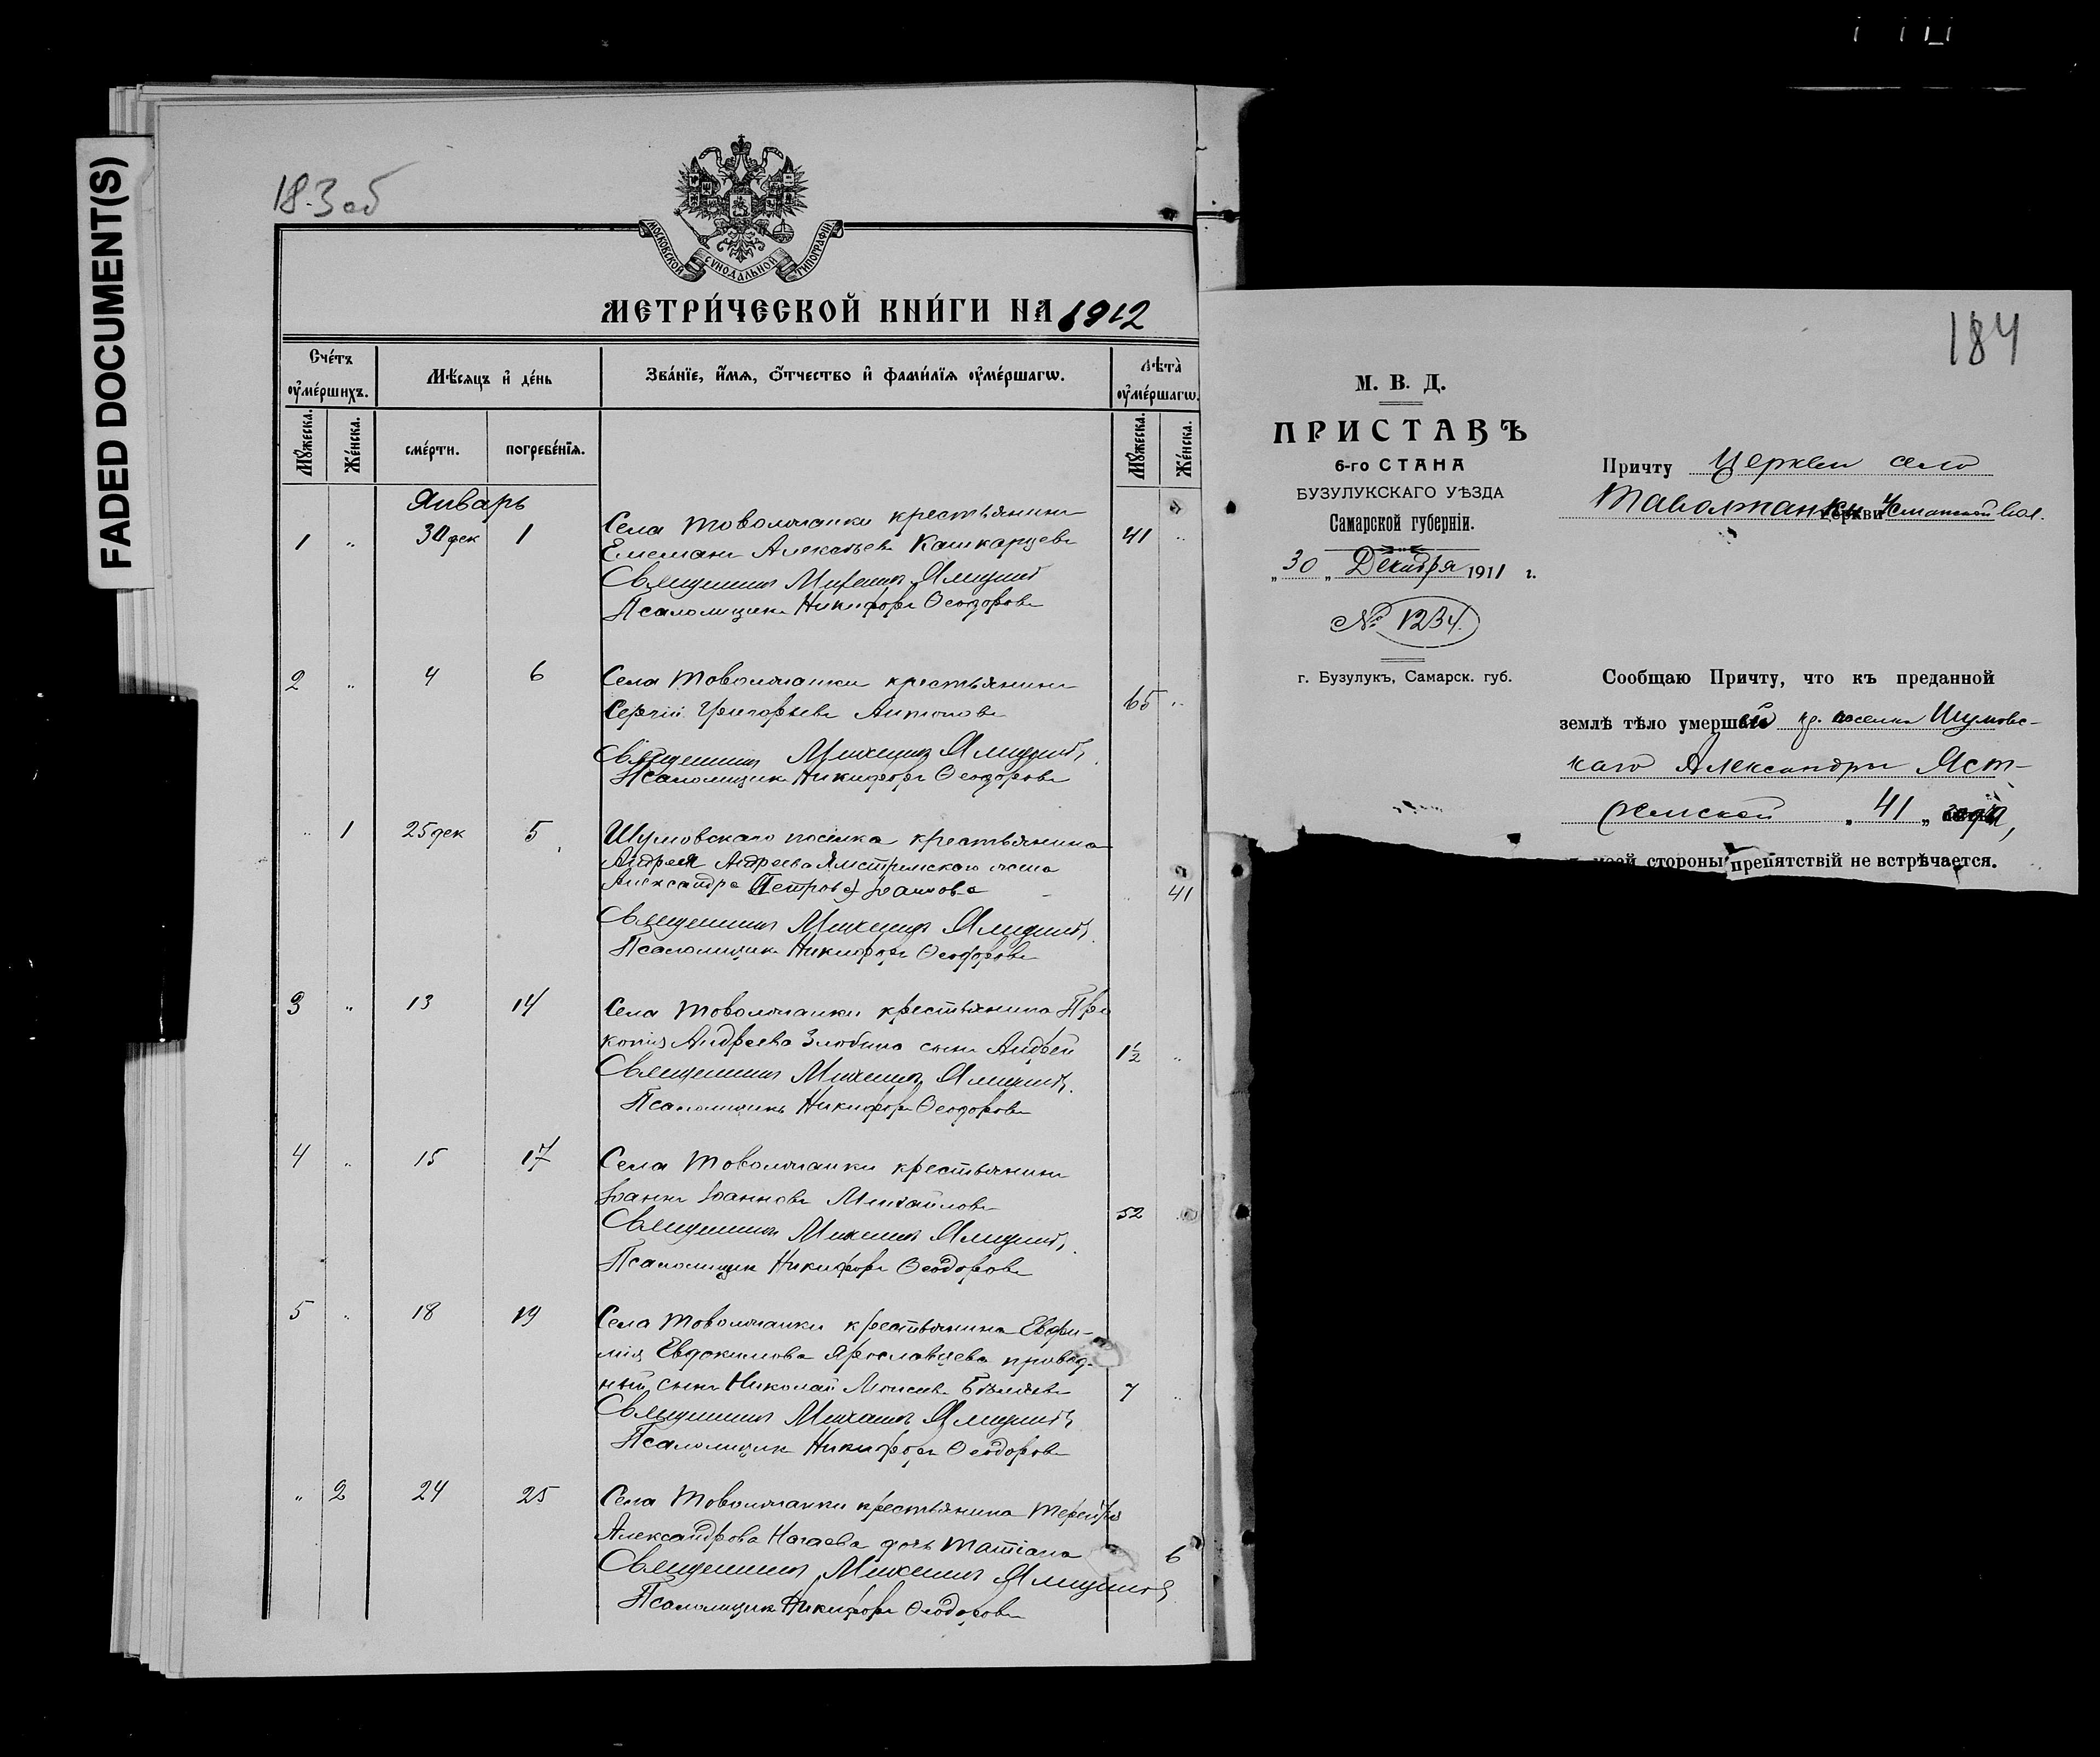 FADED DOCUMENT(S)
183 об
МОСКОВСКОЙ СУНОДАЛЬНОЙ ТИПОГРАФІИ
МЕТРИ́ЧЕСКОЙ КНИ́ГИ НА 1912
Сче́тъ ᲂу҆ме́ршихъ.
Мѣ́сяцъ и҆ де́нь
Зва́нїе, и҆́мѧ, ѻ҆́тчество и҆ фами́лїѧ ᲂу҆ме́ршагѡ.
Лѣта̀ ᲂу҆ме́ршагѡ.
Мꙋ́жеска.
Же́нска.
сме́рти.
погребе́нїѧ.
Мꙋ́жеска.
Же́нска.
Январь
1 " 30 дек 1
Села Товолжанки крестьянинъ
Алексѣевъ Кашкарцевъ
41 "
Священникъ Михаилъ
Псаломщикъ Никифоръ Ѳеодоровъ
2 " 4 6
Села Товолжанки крестьянинъ
Сергій Григорьевъ Антоновъ
65 "
Священникъ Михаилъ
Псаломщикъ Никифоръ Ѳеодоровъ
" 1 25 дек 5
Шумовскаго поселка крестьянина
Андрея Андреева жена
Александра (Петрова) Іоанова
" 41
Священникъ Михаилъ
Псаломщикъ Никифоръ Ѳеодоровъ
3 " 13 14
Села Товолжанки крестьянина Про
копія Андреева Злобина сынъ Андрей
1½ "
Священникъ Михаилъ
Псаломщикъ Никифоръ Ѳеодоровъ
4 " 15 17
Села Товолжанки крестьянинъ
Іоаннъ Іоанновъ Михайловъ
52 "
Священникъ Михаилъ
Псаломщикъ Никифоръ Ѳеодоровъ
5 " 18 19
Села Товолжанки крестьянина Евфи-
мія Евдокимова Ярославцева привод-
ный сынъ Николай Моисеевъ Бѣляевъ
7 "
Священникъ Михаилъ
Псаломщикъ Никифоръ Ѳеодоровъ
" 2 24 25
Села Товолжанки крестьянина Терентія
Александрова Нагаева дочь Татіана
6
Священникъ Михаилъ
Псаломщикъ Никифоръ Ѳеодоровъ
184
М. В. Д.
ПРИСТАВЪ
6-го СТАНА
БУЗУЛУКСКАГО УѢЗДА
Самарской губерніи.
„30„ Декабря 1911 г.
№ 1234.
г. Бузулукъ, Самарск. губ.
Причту Церкви село
Таволжанки церкви Вол.
Сообщаю Причту, что къ преданной
землѣ тѣло умершей кр. поселка Шумовс-
каго Александры Яст-
ремской „41„ года,
моей стороны препятствій не встрѣчается.